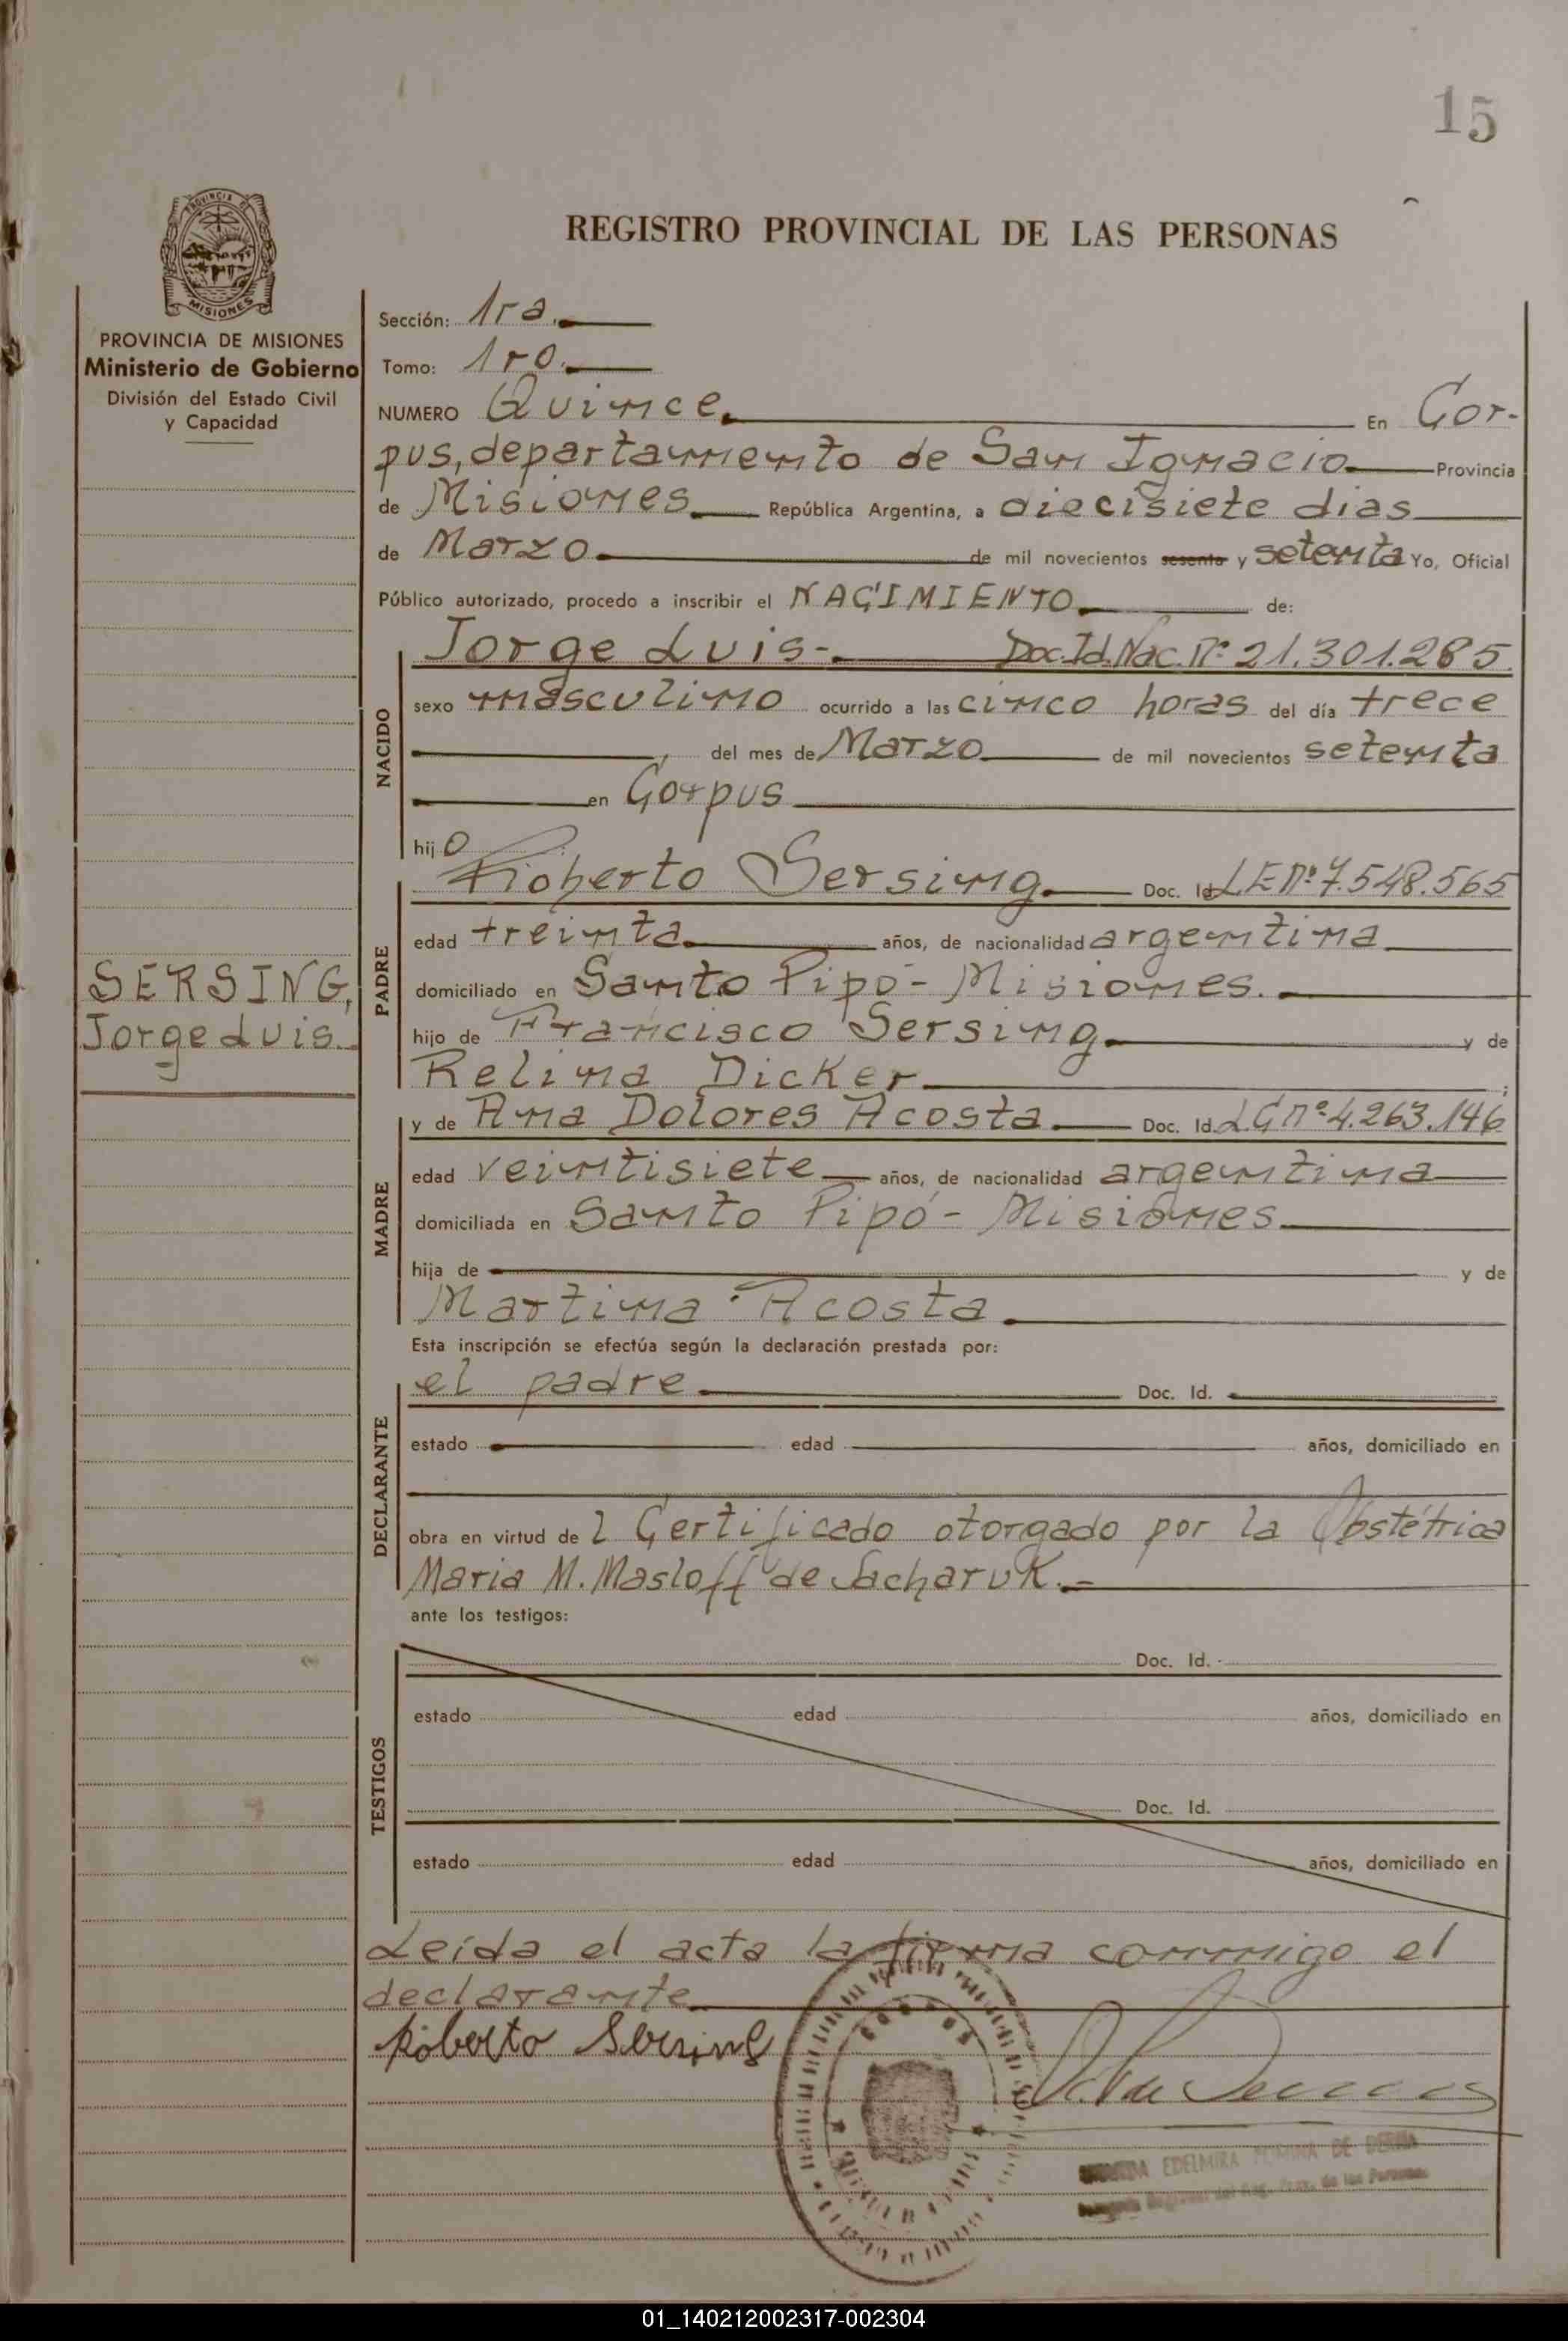 15
PROVINCIA DE
MISIONES
PROVINCIA DE MISIONES
Ministerio de Gobierno
División del Estado Civil
y Capacidad
SERSING,
Jorge Luis.
REGISTRO PROVINCIAL DE LAS PERSONAS
Sección: 1ra.
Tomo: 1ro.
NUMERO Quince. En Cor-
pus, departamento de San Ignacio Provincia
de Misiones República Argentina, a diecisiete dias
de Marzo. de mil novecientos sesenta y setenta Yo, Oficial
Público autorizado, procedo a inscribir el NACIMIENTO de:
NACIDO
Jorge Luis-. Doc. Id. Nac. Nº 21.301.285.
sexo masculino ocurrido a las cinco horas del día trece
, del mes de Marzo de mil novecientos setenta
en Corpus
hijo
PADRE
Roberto Sersing. Doc. Id LE Nº 7.548.565
edad treinta. años, de nacionalidad argentina
domiciliado en Santo Pipó - Misiones.
hijo de Francisco Sersing. y de
Relina Dicker ;
MADRE
y de Ana Dolores Acosta. Doc. Id. LC nº 4.263.146
edad veintisiete años, de nacionalidad argentina
domiciliada en Santo Pipó - Misiones
hija de y de
Martina Acosta.
Esta inscripción se efectúa según la declaración prestada por:
DECLARANTE
el padre. Doc. Id.
estado edad años, domiciliado en
obra en virtud de l Certificado otorgado por la Obstétrica
Maria M. Masloff de Sacharuk.-
ante los testigos:
TESTIGOS
Doc. Id.
estado edad años, domiciliado en
Doc. Id.
estado edad años, domiciliado en
Leída el acta la firma conmigo el
declarante.
Roberto Sersing
EDELMIRA DE
del Reg. Prov. de las Personas
01_140212002317-002304